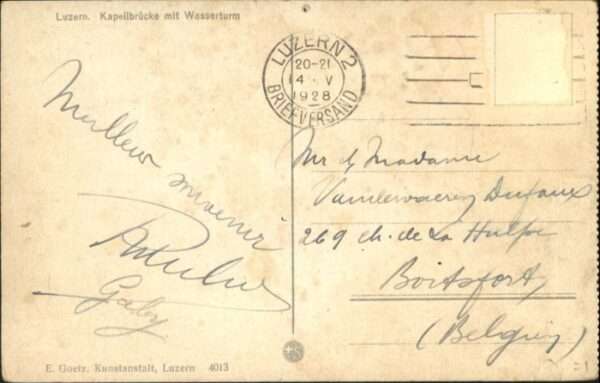 Luzern. Kapellbrücke mit Wasserturm
LUZERN 2
20-21
14 · V
1928
BRIEFVERSAND
Meilleur souvenir
Gaby
Mr & Madame
Dufaux
269 ch. de La Hulpe
Boitsfort
(Belgique)
E. Goetz. Kunstanstalt, Luzern 4013